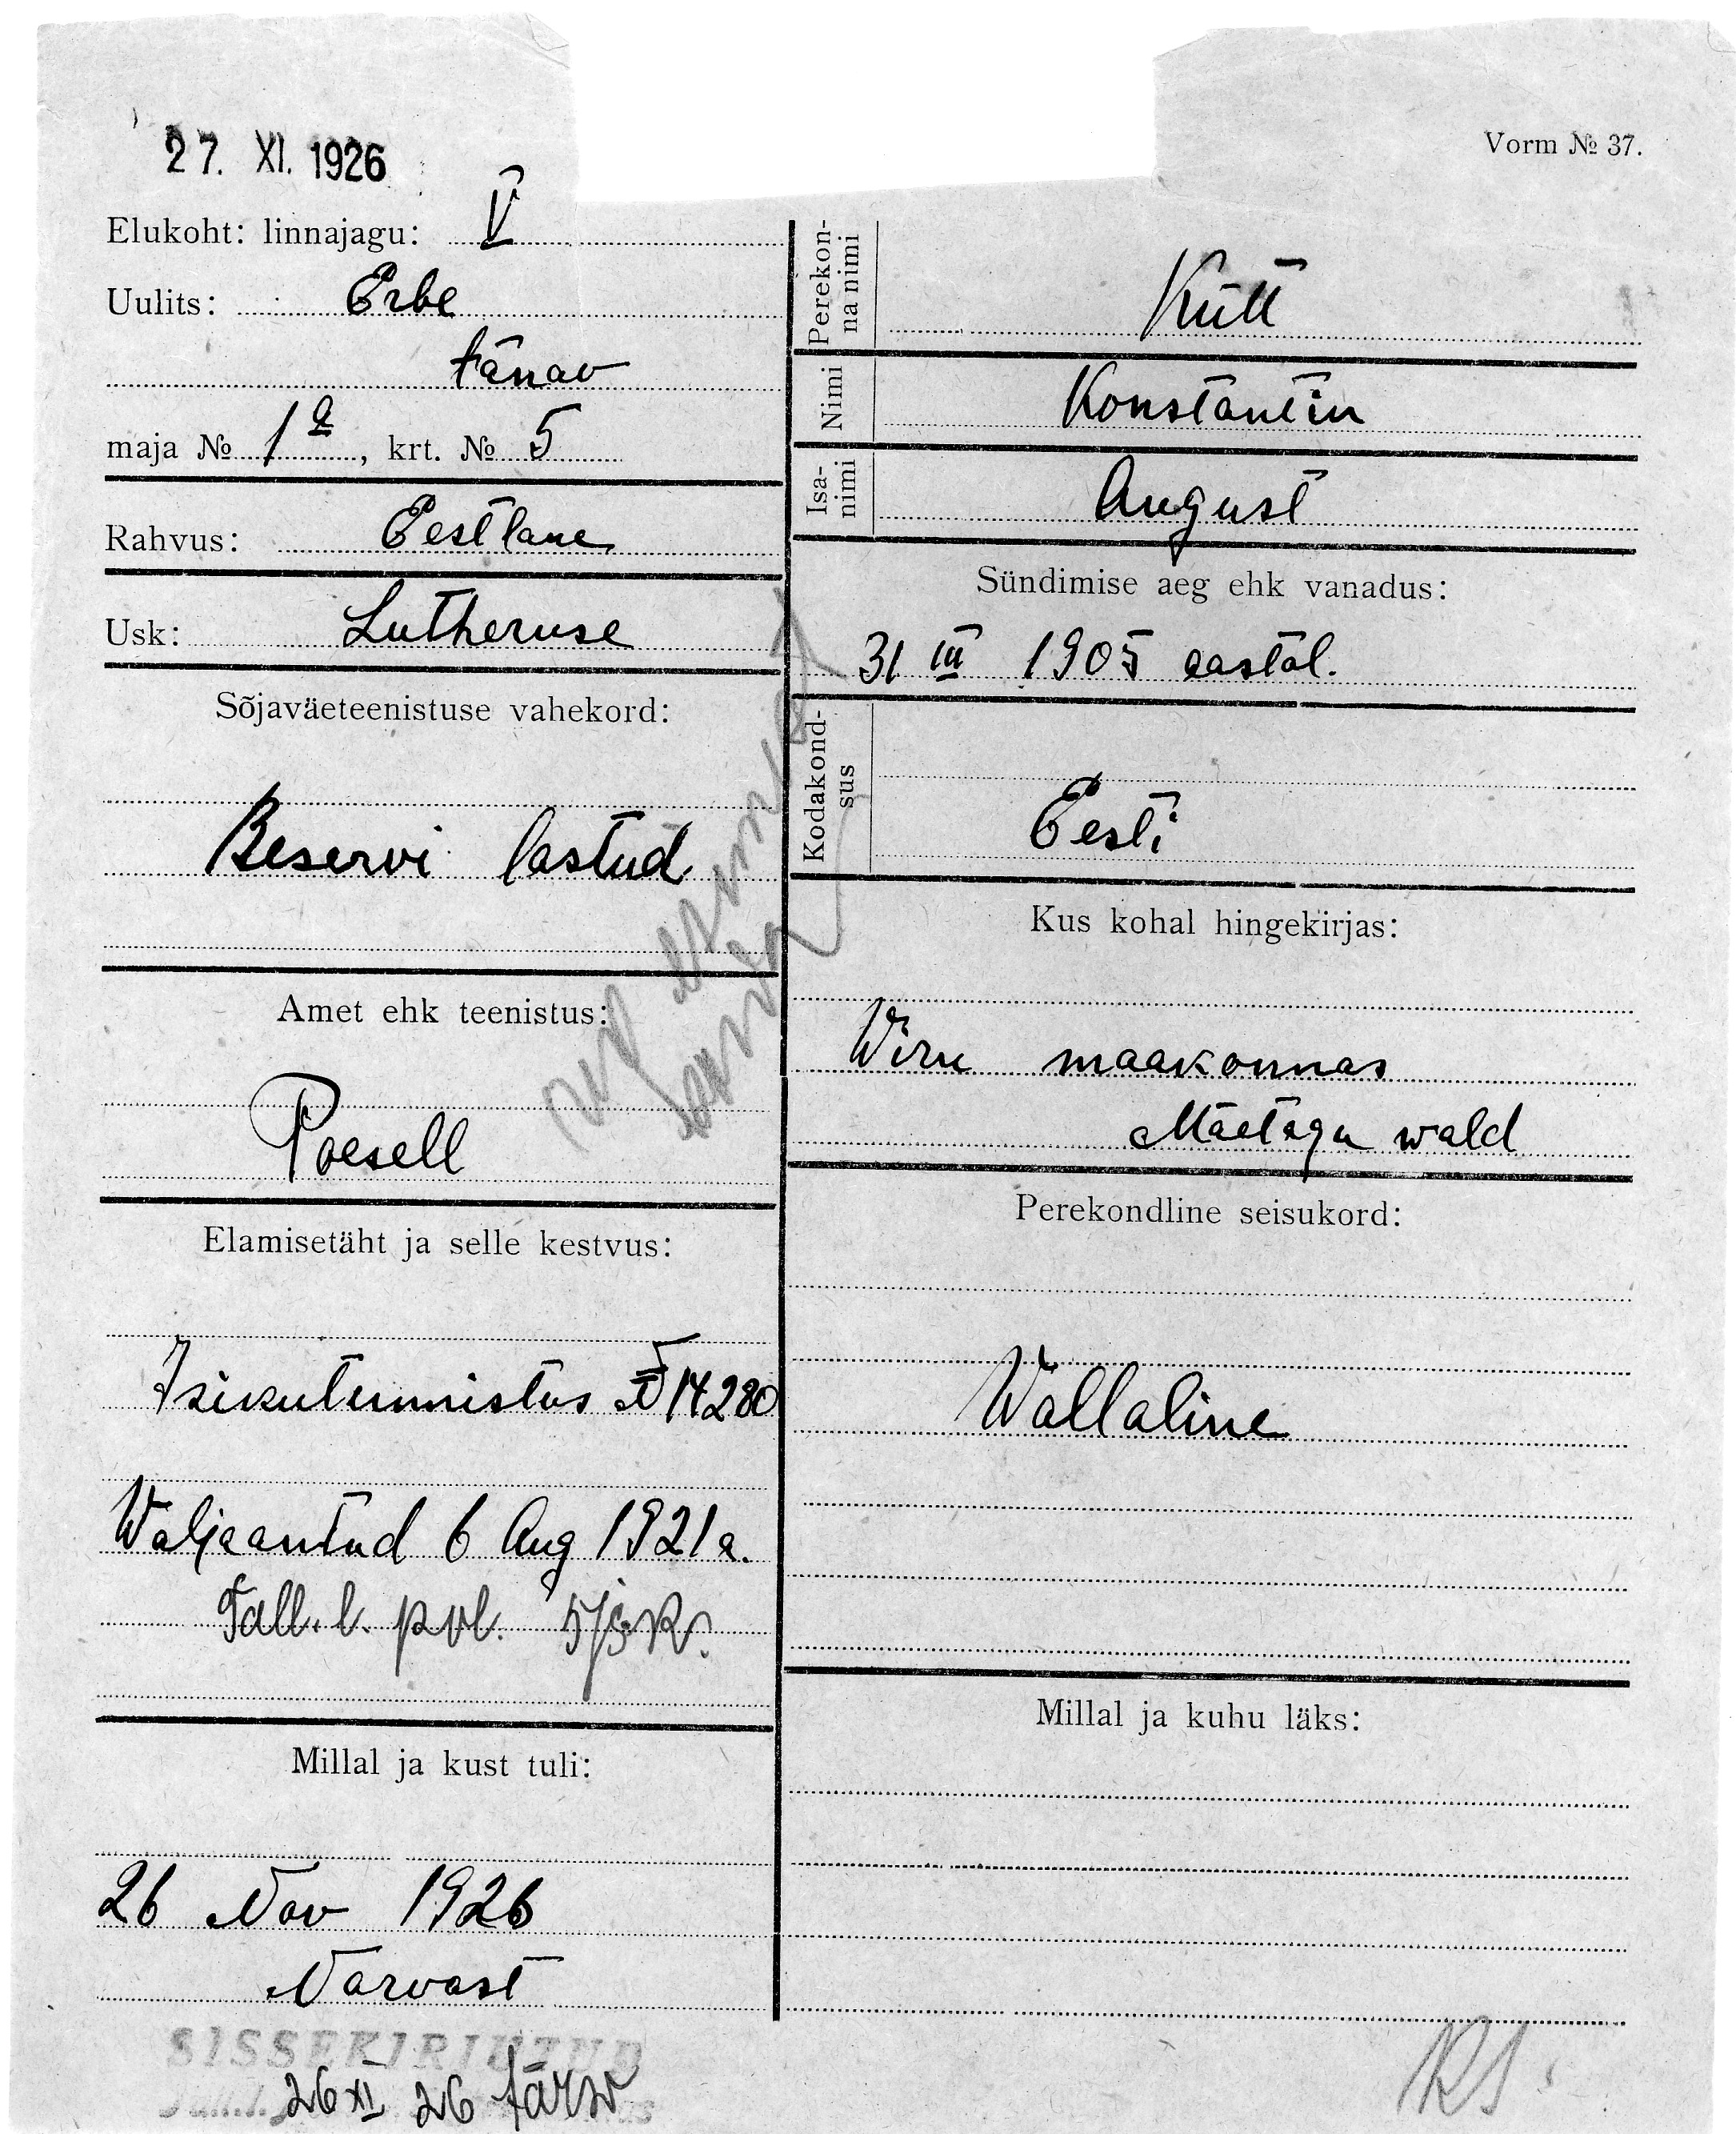 27. XI. 1926
Vorm № 37.
Elukoht: linnajagu: V
Uulits: Erbe
tänav
maja № 1a, krt. № 5
Rahvus: Eestlane
Usk: Lutheruse
Sõjaväeteenistuse vahekord:
Reservi lastud
Amet ehk teenistus:
Poesell
Elamisetäht ja selle kestvus:
Isikutunnistus № 14280
Waljaantud 6 Aug 1921 a.
Tall. l. pol. 5 jsk.
Millal ja kust tuli:
26 Nov 1926
Narvast
SISSEKIRJUTUD
26 XI 26
Perekon-
na nimi
Kütt
Nimi
Konstantin
Isa-
nimi
August
Sündimise aeg ehk vanadus:
31 III 1905 aastal.
Kodakond-
sus
Eesti
Kus kohal hingekirjas:
Wiru maakonnas
Mäetagu wald
Perekondline seisukord:
Wallaline
Millal ja kuhu läks: